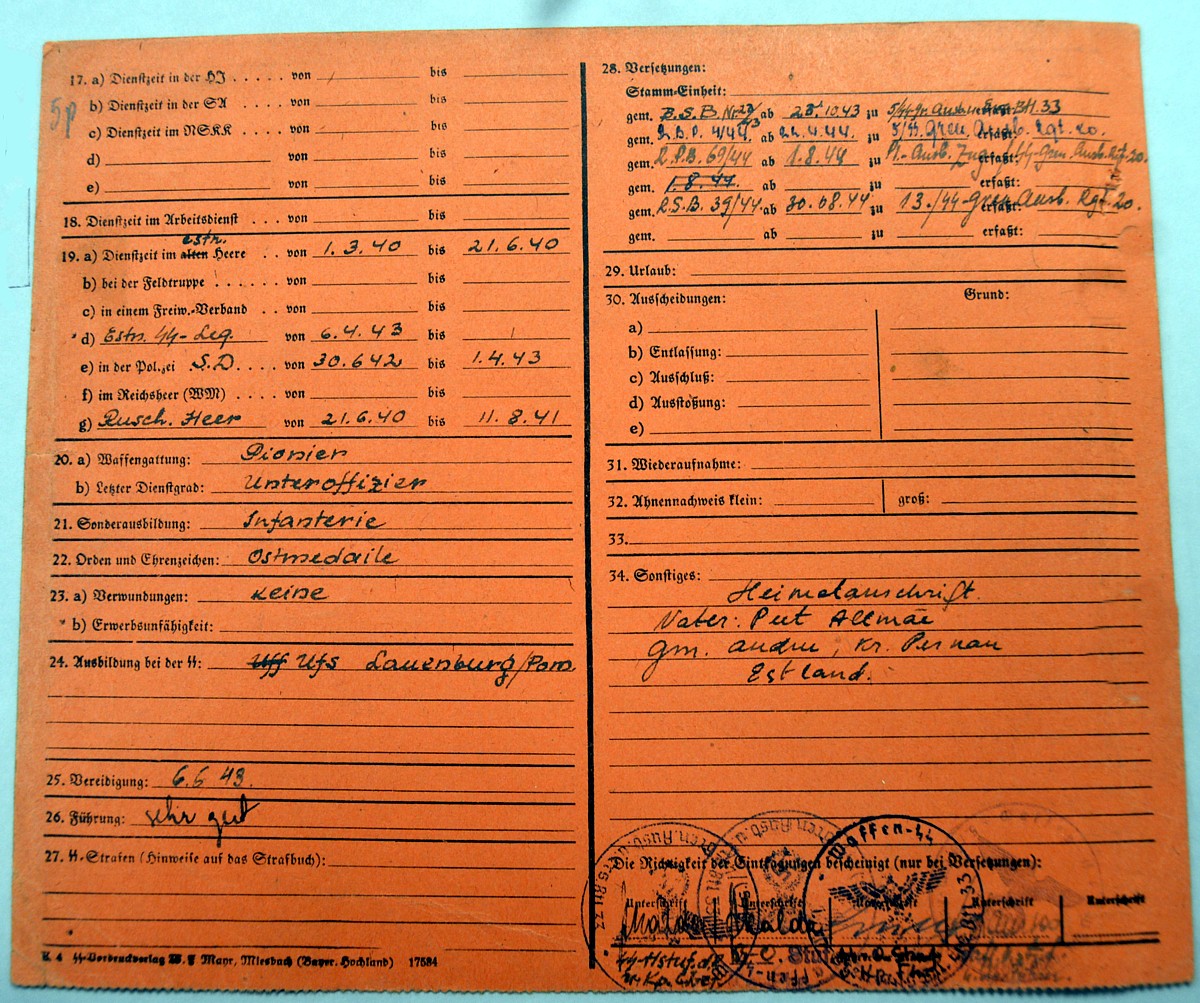 5p
17. a) Dienstzeit in der HJ ..... von bis
b) Dienstzeit in der SA ..... von bis
c) Dienstzeit im NSKK .... von bis
d) von bis
e) von bis
18. Dienstzeit im Arbeitsdienst ... von bis
estn.
19. a) Dienstzeit im alten Heere .. von 1.3.40 bis 21.6.40
b) bei der Feldtruppe ....... von bis
c) in einem Freiw.-Verband .. von bis
d) Estn. SS-Leg. von 6.4.43 bis
e) in der Polizei S.D. .... von 30.6.42 bis 1.4.43
f) im Reichsheer (WM) .... von bis
g) Rusch. Heer von 21.6.40 bis 11.8.41
20. a) Waffengattung: Pionier
b) Letzter Dienstgrad: Unteroffizier
21. Sonderausbildung: Infanterie
22. Orden und Ehrenzeichen: Ostmedaile
23. a) Verwundungen: keine
b) Erwerbsunfähigkeit:
24. Ausbildung bei der SS: Uff Ufs Lauenburg/Pom
25. Vereidigung: 6.6 43.
26. Führung: sehr gut
27. SS-Strafen (Hinweise auf das Strafbuch):
K 4 SS-Vordruckverlag W. F. Mayr, Miesbach (Bayer. Hochland) 17584
28. Versetzungen:
Stamm-Einheit:
gem. ab 10.43 zu
gem. ab 4.44. zu 5/SS. Gren. Ausb. Rgt. 20.
gem. 69/44 ab 1.8.44 zu Ausb. SS-Gren. Ausb. Rgt. 20.
gem. 1.8.44. ab zu erfaßt:
gem. R.S.B. 39/44 ab 30.08.44 zu 13./SS-Gren. Ausb. Rgt. 20.
gem. ab zu erfaßt:
29. Urlaub:
30. Ausscheidungen: Grund:
a)
b) Entlassung:
c) Ausschluß:
d) Ausstoßung:
e)
31. Wiederaufnahme:
32. Ahnennachweis klein: groß:
33.
34. Sonstiges:
Heimatanschrift.
Vater: Peet Allmäe
Gm. Andru, Kr. Pernau
Estland.
Die Richtigkeit der Eintragungen bescheinigt (nur bei Versetzungen):
Waffen-SS
Unterschrift Unterschrift Unterschrift Unterschrift Unterschrift
SS-Hstuf.